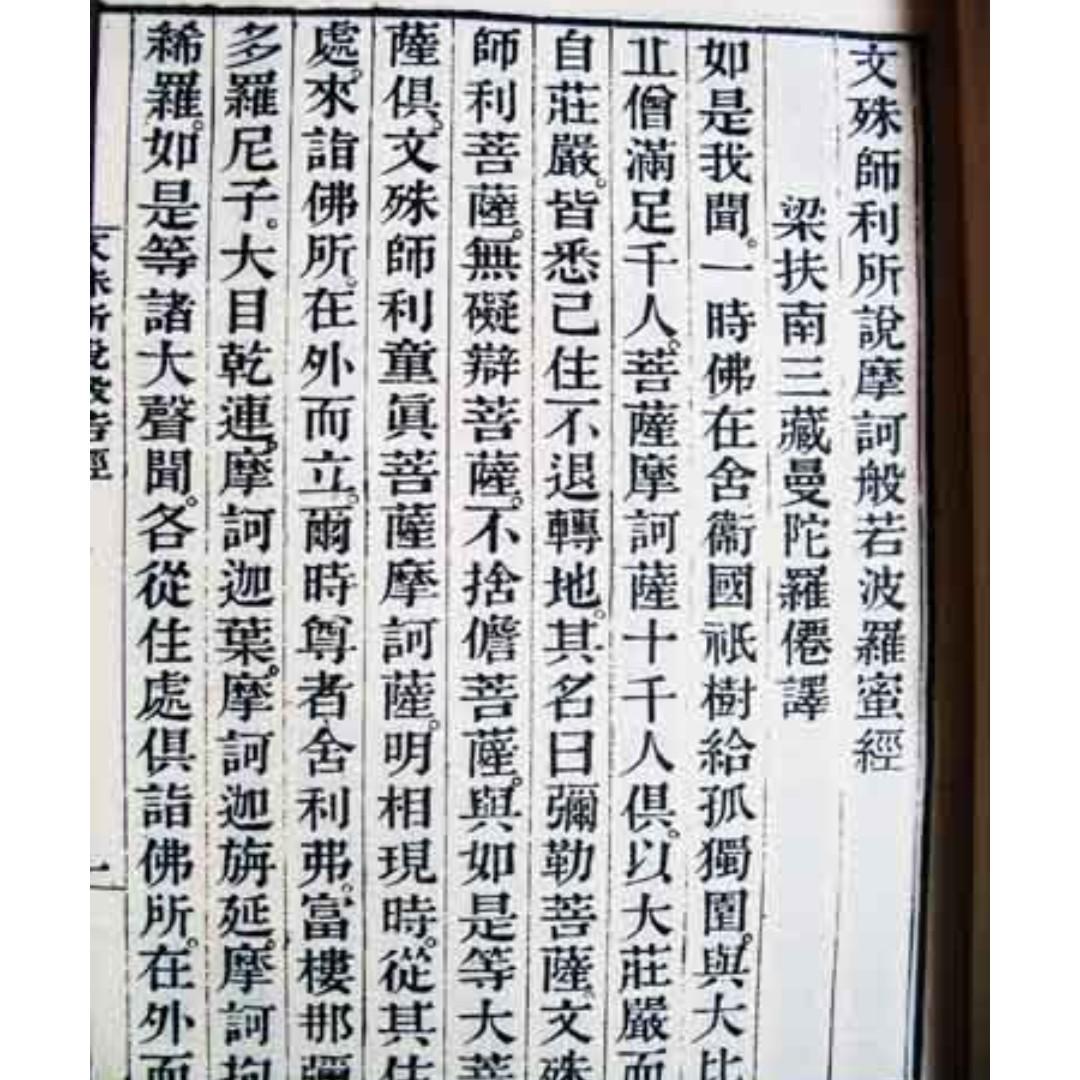 文殊師利所說摩訶般若波羅蜜經
梁扶南三藏曼陀羅僊譯
如是我聞。一時佛在舍衞國祇樹給孤獨園。與大比
丘僧滿足千人。菩薩摩訶薩十千人俱。以大莊嚴而
自莊嚴。皆悉已住不退轉地。其名曰彌勒菩薩。文殊
師利菩薩。無礙辯菩薩。不捨儋菩薩。與如是等大菩
薩俱。文殊師利童眞菩薩摩訶薩。明相現時。從其住
處。來詣佛所。在外而立。爾時尊者舍利弗。富樓那彌
多羅尼子。大目乾連。摩訶迦葉。摩訶迦旃延。摩訶拘
絺羅。如是等諸大聲聞。各從住處俱詣佛所。在外而
文殊所說般若經